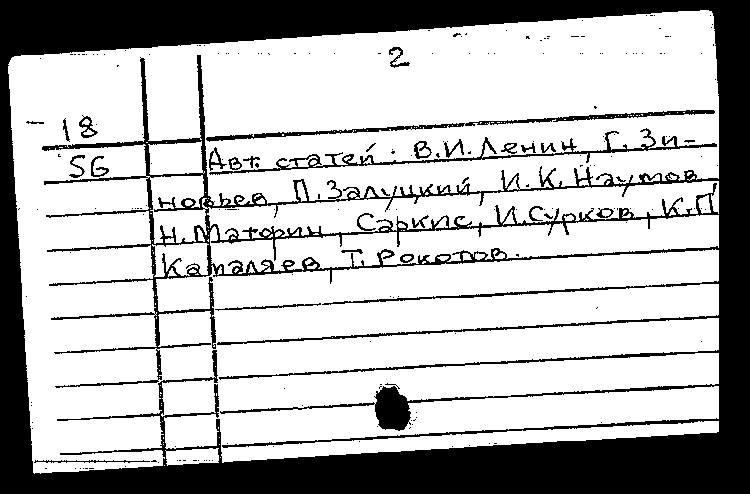 2
- 18
56
Авт. статей: В.И. Ленин, Г. Зи-
новьев, П. Залуцкий, И.К. Наумов
Н. Маторин, Саркис, И. Сурков, К.П
Каталяев, Т. Рокотов.